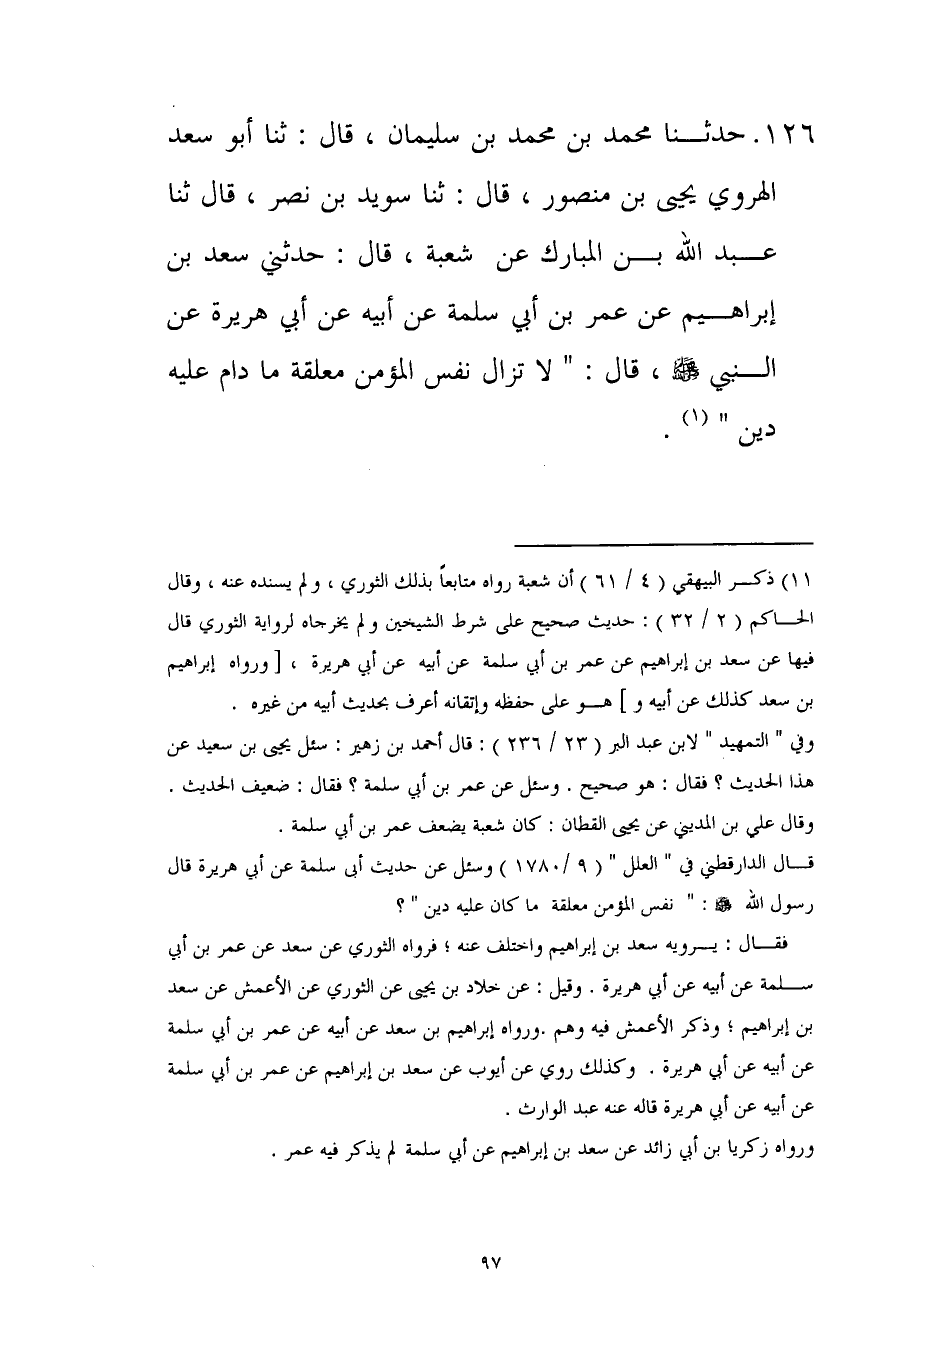 ١٢٦. حدثـــنا محمد بن محمد بن سليمان ، قال : ثنا أبو سعد
الهروي يحيى بن منصور ، قال : ثنا سويد بن نصر ، قال ثنا
عـــبد الله بـــن المبارك عن شعبة ، قال : حدثني سعد بن
إبراهـــيم عن عمر بن أبي سلمة عن أبيه عن أبي هريرة عن
الـــنبي ﷺ ، قال : " لا تزال نفس المؤمن معلقة ما دام عليه
دين " (١) .
١١) ذكـــر البيهقي ( ٤ / ٦١ ) أن شعبة رواه متابعاً بذلك الثوري ، و لم يسنده عنه ، وقال
الحـــاكم ( ٢ / ٣٢ ) : حديث صحيح على شرط الشيخين و لم يخرجاه لرواية الثوري قال
فيها عن سعد بن إبراهيم عن عمر بن أبي سلمة عن أبيه عن أبي هريرة ، [ ورواه إبراهيم
بن سعد كذلك عن أبيه و ] هـــو على حفظه وإتقانه أعرف بحديث أبيه من غيره .
وفي " التمهيد " لابن عبد البر ( ٢٣ / ٢٣٦ ) : قال أحمد بن زهير : سئل يحيى بن سعيد عن
هذا الحديث ؟ فقال : هو صحيح . وسئل عن عمر بن أبي سلمة ؟ فقال : ضعيف الحديث .
وقال علي بن المديني عن يحيى القطان : كان شعبة يضعف عمر بن أبي سلمة .
قـــال الدارقطني في " العلل " ( ٩ /١٧٨٠ ) وسئل عن حديث أبى سلمة عن أبي هريرة قال
رسول الله ﷺ : " نفس المؤمن معلقة ما كان عليه دين " ؟
فقـــال : يـــرويه سعد بن إبراهيم واختلف عنه ؛ فرواه الثوري عن سعد عن عمر بن أبي
ســـلمة عن أبيه عن أبي هريرة . وقيل : عن خلاد بن يحيى عن الثوري عن الأعمش عن سعد
بن إبراهيم ؛ وذكر الأعمش فيه وهم .ورواه إبراهيم بن سعد عن أبيه عن عمر بن أبي سلمة
عن أبيه عن أبي هريرة . وكذلك روي عن أيوب عن سعد بن إبراهيم عن عمر بن أبي سلمة
عن أبيه عن أبي هريرة قاله عنه عبد الوارث .
ورواه زكريا بن أبي زائد عن سعد بن إبراهيم عن أبي سلمة لم يذكر فيه عمر .
٩٧